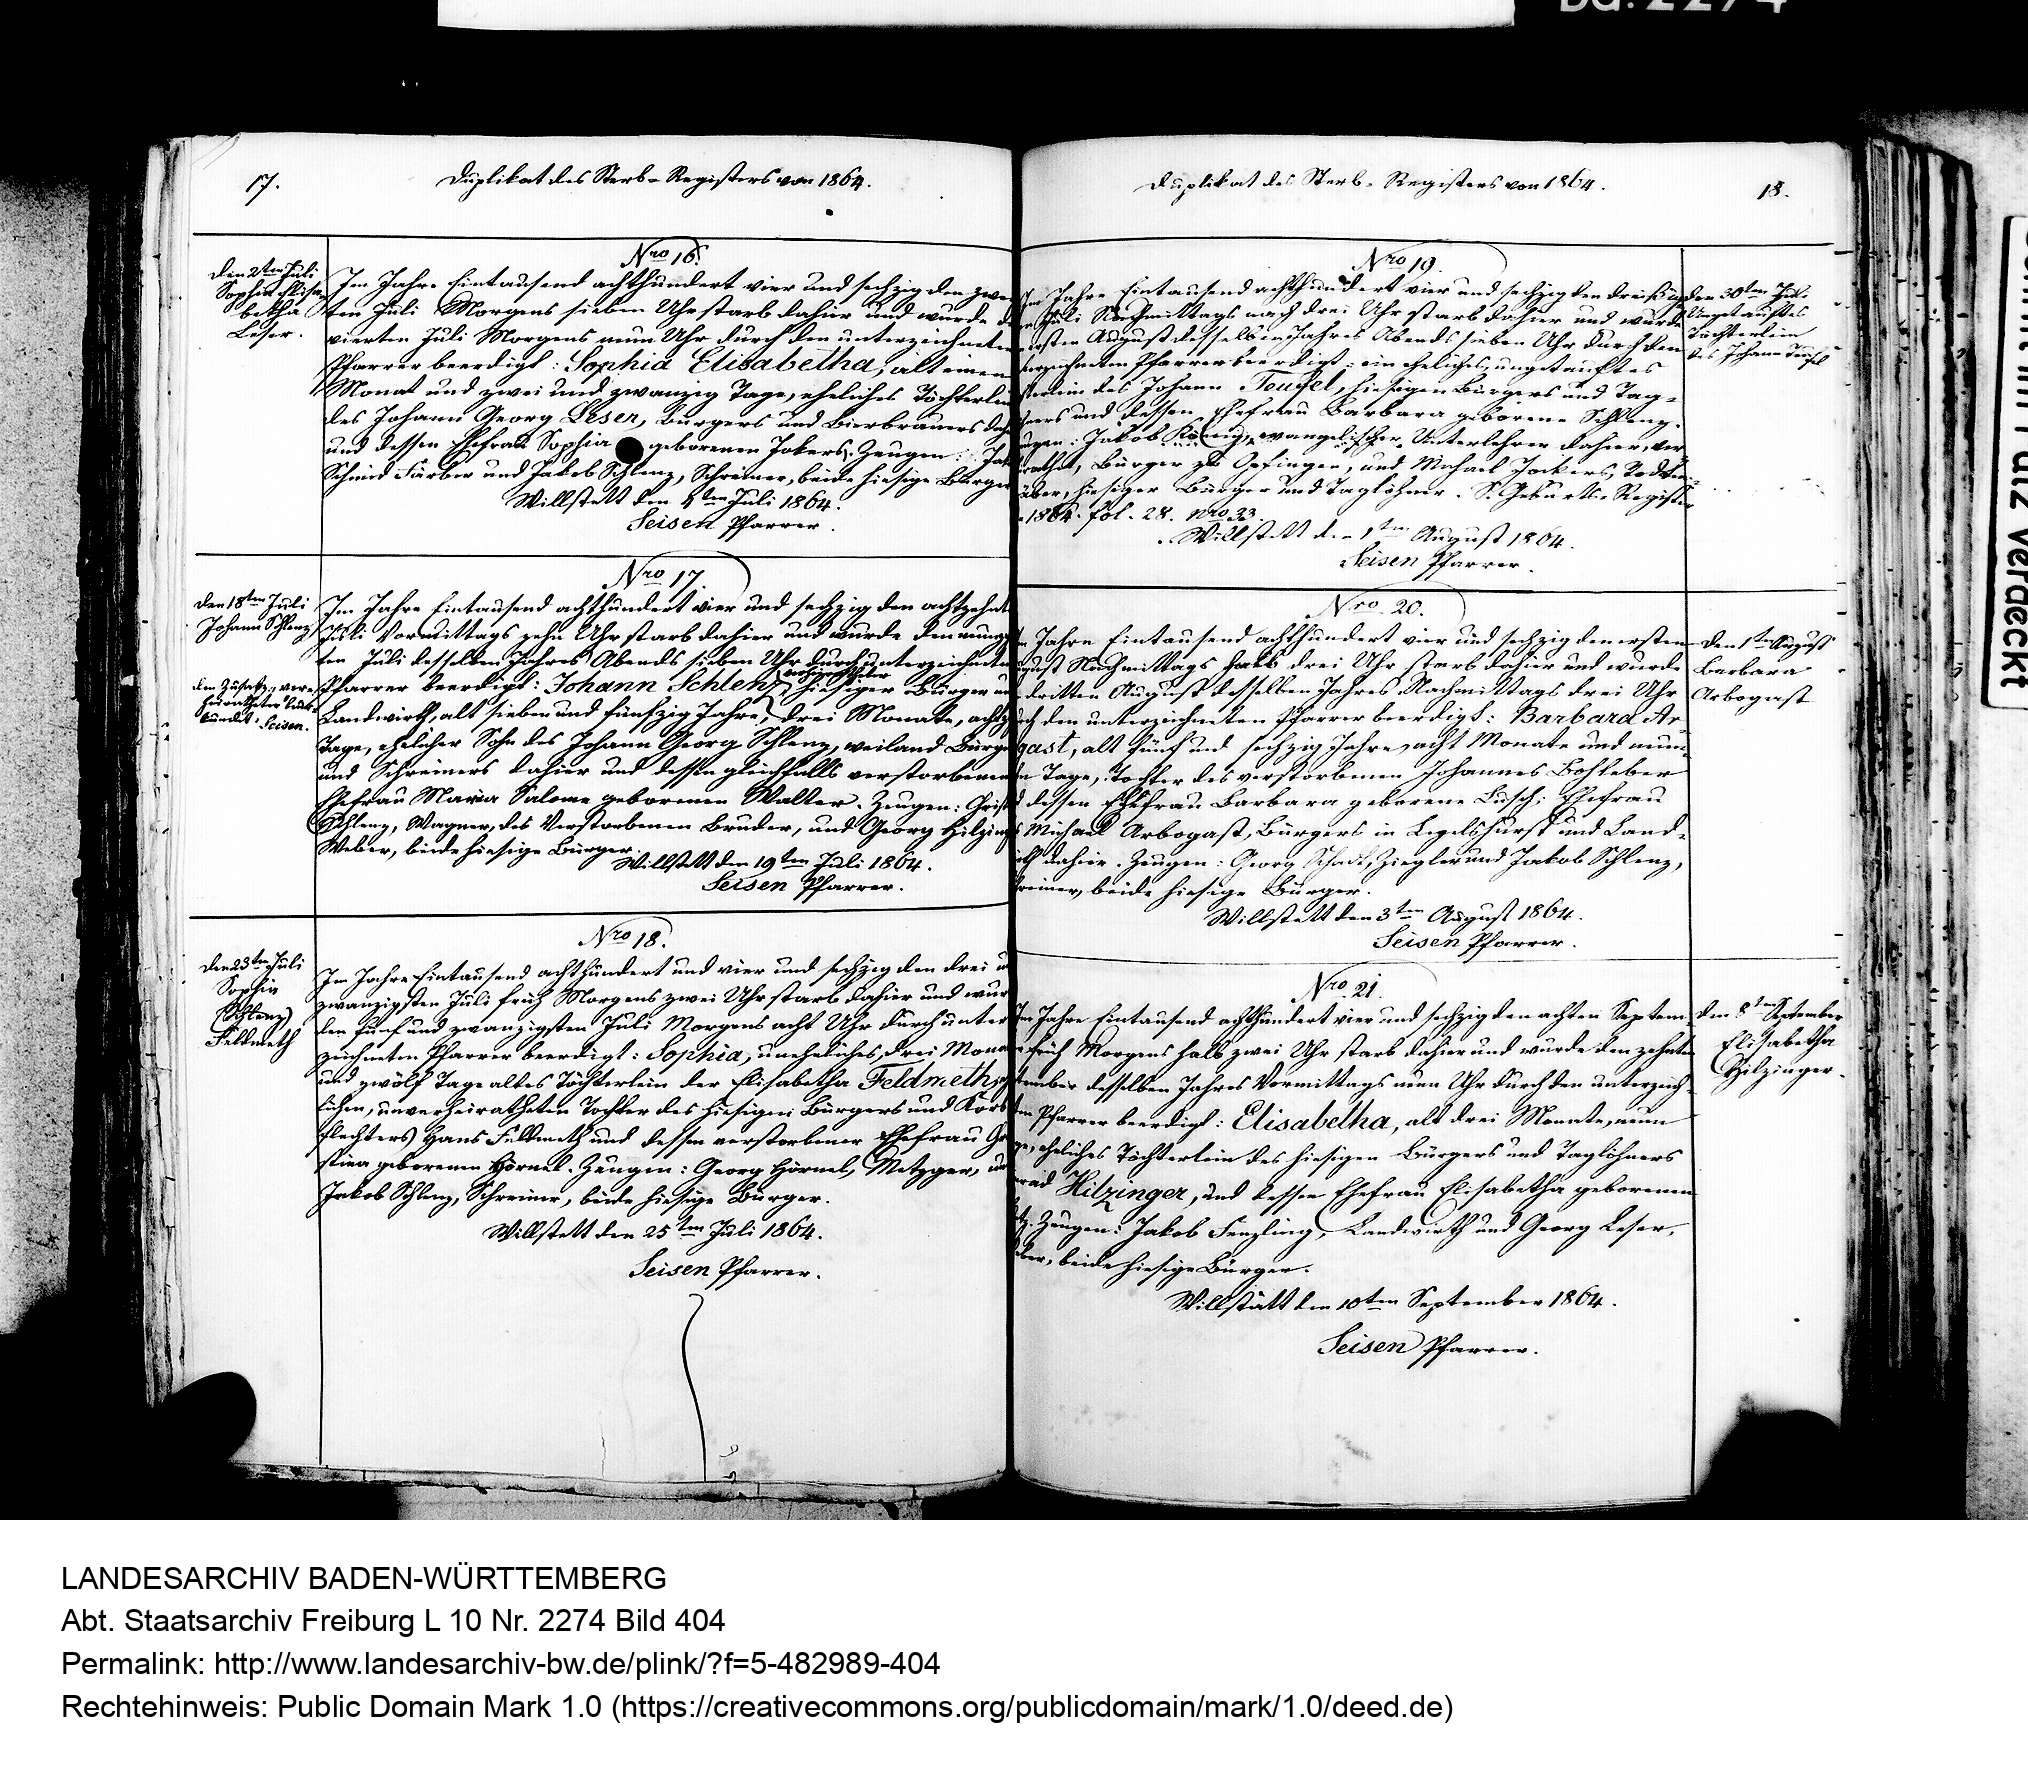 Bd. 2274
17.
Duplikat des Sterb-Registers von 1864.
Nro 16.
den 2ten Juli
Sophia Elisa
betha
Leser.
Im Jahre Eintausend achthundert vier und sechzig den zwei
ten Juli Morgens sieben Uhr starb dahier und wurde
vierten Juli Morgens neun Uhr durch den unterzeichneten
Pfarrer beerdigt: Sophia Elisabetha, alt einen
Monat und zwei und zwanzig Tage, eheliches Töchterlein
des Johann Georg Leser, Bürgers und Bierbrauers
und dessen Ehefrau Sophia geborenen Jokers. Zeugen:
Schmid Färber und Jakob Schlenz, Schreiner, beide hiesige Bürger
Willstett den 4ten Juli 1864.
Seisen Pfarrer.
Nro 17.
den 18ten Juli
Johann Schlenz
den Zusatz, "ver
heiratheter" beur
kundet: Seisen.
Im Jahre Eintausend achthundert vier und sechzig den achtzehnt
Juli Vormittags zehn Uhr starb dahier und wurde den neunze
ten Juli desselben Jahres Abends sieben Uhr durch unterzeichneten
verheiratheter
Pfarrer beerdigt: Johann Schlenz, hiesiger Bürger und
Landwirth, alt sieben und fünfzig Jahre, drei Monate, acht
Tage, ehelicher Sohn des Johann Georg Schlenz, weiland Bürgers
und Schreiners dahier und dessen gleichfalls verstorbenen
Ehefrau Maria Salome geborenen Walter. Zeugen: Christ
Schlenz, Wagner, des Verstorbenen Bruder, und Georg Hilzinger
Weber, beide hiesige Bürger.
Willstett den 19ten Juli 1864.
Seisen Pfarrer.
Nro 18.
den 23ten Juli
Sophia
(Schlenz)
Feldmeth
Im Jahre Eintausend achthundert und vier und sechzig den drei u
zwanzigsten Juli früh Morgens zwei Uhr starb dahier und wur
den fünf und zwanzigsten Juli Morgens acht Uhr durch unter
zeichneten Pfarrer beerdigt: Sophia, uneheliches, drei Mona
und zwölf Tage altes Töchterlein der Elisabetha Feldmeth,
lichen, unverheiratheten Tochter des hiesigen Bürgers und Korb
flechters Hans Feldmeth und dessen verstorbener Ehefrau
stina geborenen Hörnel. Zeugen: Georg Hörnel, Metzger, un
Jakob Schlenz, Schreiner, beide hiesige Bürger.
Willstett den 25ten Juli 1864.
Seisen Pfarrer.
Duplikat des Sterb-Registers von 1864.
18.
Nro 19.
den 30ten Juli
Ungetauftes
Töchterlein
des Johann Teufel
Im Jahre Eintausend achthundert vier und sechzig den dreißig
Juli Nachmittags nach drei Uhr starb dahier und wurde
ersten August desselben Jahres Abends sieben Uhr durch den
terzeichneten Pfarrer beerdigt: ein eheliches, ungetauftes
terlein des Johann Teufel, hiesigen Bürgers und Tag-
löhners und dessen Ehefrau Barbara geborene Schlenz.
ugen: Jakob König, evangelischer Unterlehrer dahier, ver
rathet, Bürger zu Opfingen, und Michael Jockers, Todten-
gräber, hiesiger Bürger und Taglöhner. S. Geburts-Register
1864. fol. 28. Nro 33.
Willstett den 1ten August 1864.
Seisen Pfarrer.
Nro. 20.
den 1ten August
Barbara
Arbogast
Jahre Eintausend achthundert vier und sechzig den ersten
gust Nachmittags halb drei Uhr starb dahier und wurde
dritten August desselben Jahres Nachmittags drei Uhr
ch den unterzeichneten Pfarrer beerdigt: Barbara Ar
gast, alt fünf und sechzig Jahre, acht Monate und neun
Tage, Tochter des verstorbenen Johannes Bohleber
d dessen Ehefrau Barbara geborene Busch; Ehefrau
s Michael Arbogast, Bürgers in Legelshurst und Land-
dahier. Zeugen: Georg Schadt, Ziegler und Jakob Schlenz,
reiner, beide hiesige Bürger.
Willstett den 3ten August 1864.
Seisen Pfarrer.
Nro 21.
den 8ten September
Elisabetha
Hilzinger.
Im Jahre Eintausend achthundert vier und sechzig den achten Septem-
früh Morgens halb zwei Uhr starb dahier und wurde den zehnten
tember desselben Jahres Vormittags neun Uhr durch den unterzeich-
ten Pfarrer beerdigt: Elisabetha, alt drei Monate, neun
ge, eheliches Töchterlein des hiesigen Bürgers und Taglöhners
rad Hilzinger, und dessen Ehefrau Elisabetha geborenen
Zeugen: Jakob Fenzling, Landwirth und Georg Leser,
ber, beide hiesige Bürger.
Willstätt den 10ten September 1864.
Seisen Pfarrer.
verdeckt
LANDESARCHIV BADEN-WÜRTTEMBERG
Abt. Staatsarchiv Freiburg L 10 Nr. 2274 Bild 404
Permalink: http://www.landesarchiv-bw.de/plink/?f=5-482989-404
Rechtehinweis: Public Domain Mark 1.0 (https://creativecommons.org/publicdomain/mark/1.0/deed.de)